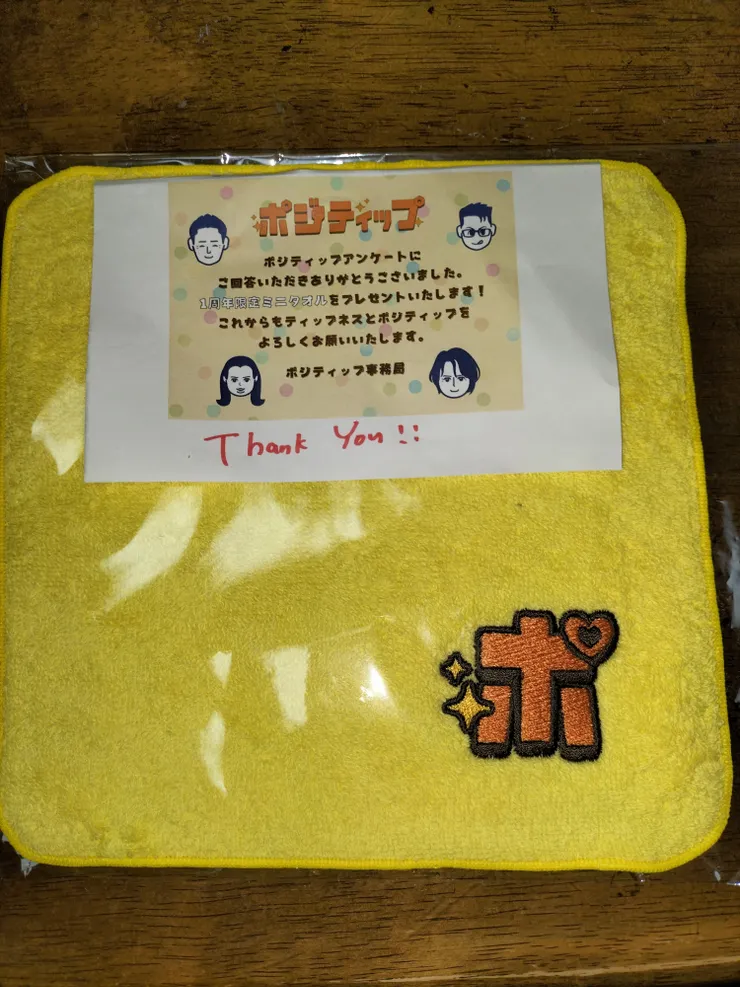 ポジティップ
ポジティップアンケートに
ご回答いただきありがとうございました。
1周年限定ミニタオルをプレゼントいたします！
これからもティップネスとポジティップを
よろしくお願いいたします。
ポジティップ事務局
Thank You !!
ポ